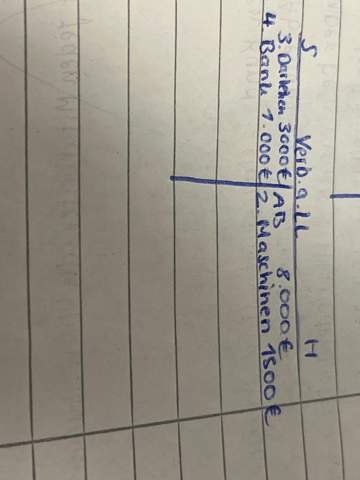 S Verb.a.LL H
3. Darlehen 3000€ | AB 8.000€
4. Bank 1.000€ | 2. Maschinen 1500€